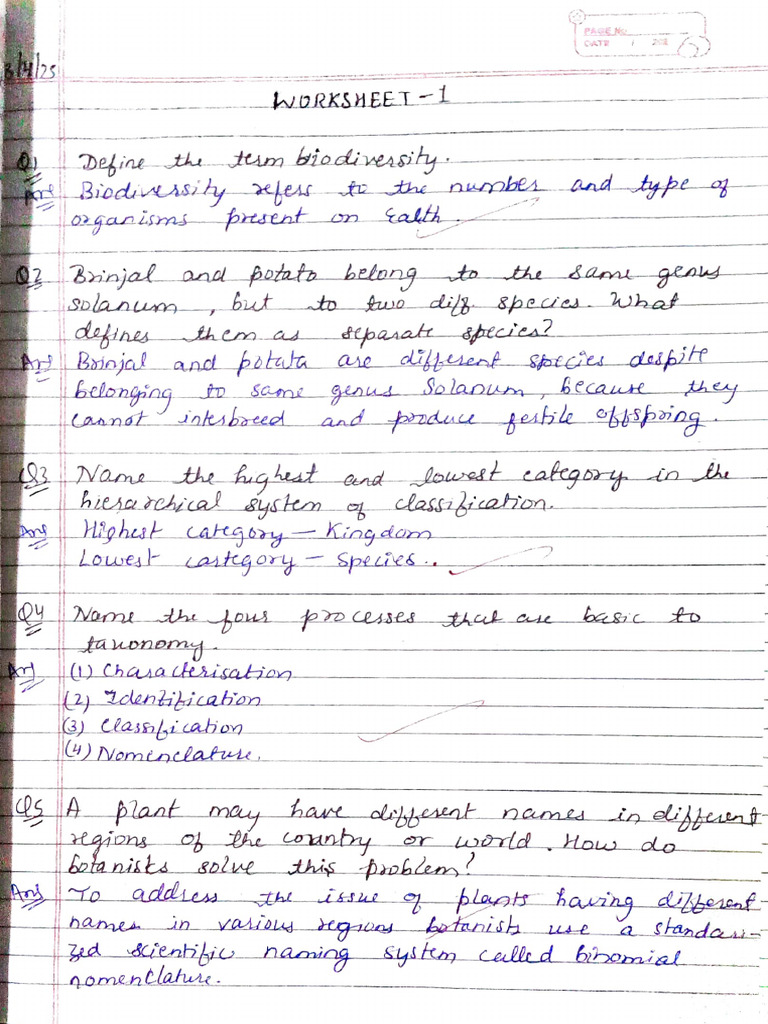 PAGE No.
DATE / 202
3/4/25
WORKSHEET-1
Q1 Define the term biodiversity.
Ans Biodiversity refers to the number and type of
organisms present on Ealth.
Q2 Brinjal and potato belong to the same genus
solanum, but to two diff species. What
defines them as separate species?
Ans Brinjal and potata are different species despite
belonging to same genus Solanum, because they
cannot interbreed and produce fertile offspring.
Q3 Name the highest and lowest category in the
hierarchical system of classification.
Ans Highest category – Kingdom
Lowest castegory – Species..
Q4 Name the four processes that are basic to
taxonomy.
Ans (1) Characterisation
(2) Identification
(3) Classification
(4) Nomenclature.
Q5 A plant may have different names in different
regions of the country or world. How do
botanists solve this problem?
Ans To address the issue of plants having different
names in various regions botanists use a standari-
zed scientific naming system called binomial
nomenclature.